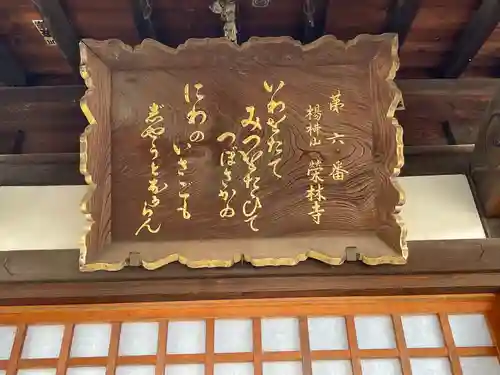 第六番
楊耕山 榮林寺
いわをたて
みづをたゝひて
つぼさかの
にわのいさごも
じやうどなるらん